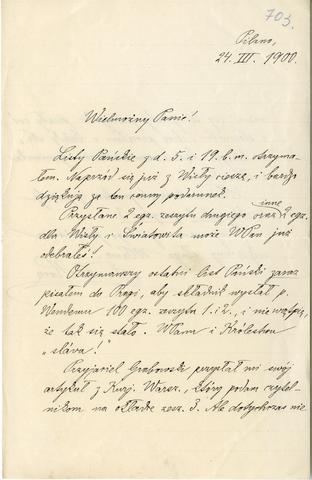 703.
Pilzno,
24. III. 1900.
Wielmożny Panie!
Listy Pańskie z d. 5. i 19. b. m. otrzyma-
łem. Naprzód się już z Wisły cieszę, i bardzo
dziękuję za ten cenny podarunek.
Przysłane 2 egz. zeszytu drugiego oraz inne egz.
dla Wisły i Światowita może WPan już
odebrałeś!
Otrzymawszy ostatni list Pański zaraz
pisałem do Pragi, aby składnik wysłał p.
Wendemu 100 egz. zeszytu 1. i 2., i nie wątpię,
że tak się stało. WPanu i Królestwu
„sláva!"
Przyjaciel Grabowski przysłał mi swój
artykuł z Kurj. Warsz., który podam czytel-
nikom na okładce zesz. 3. Ale dotychczas nie